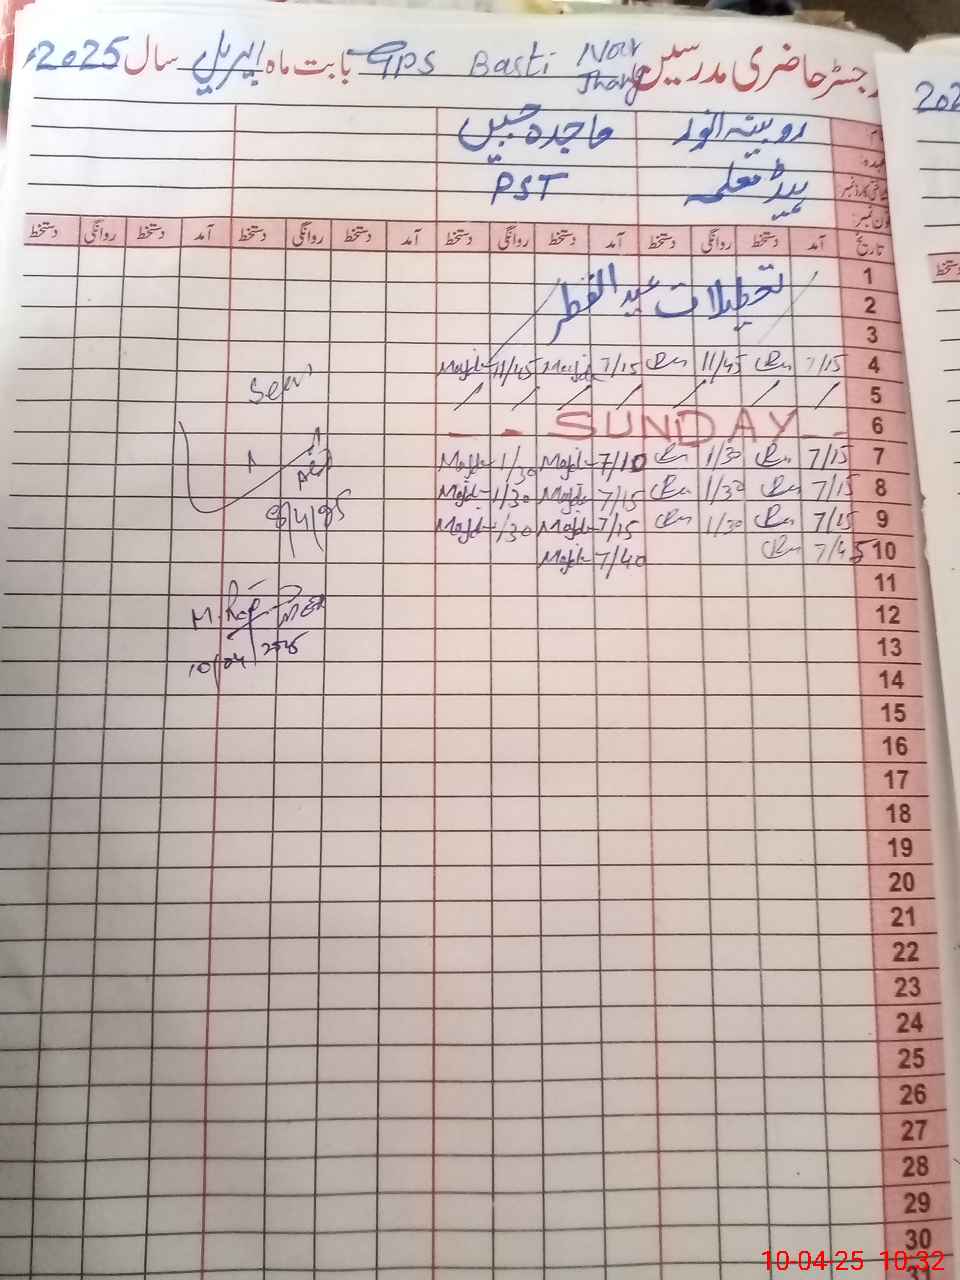 رجسٹر حاضری مدرسین GPS Basti Nor Jhang بابت ماہ اپریل سال 2025ء
202
نام روبینہ انور ماجدہ جبیں
عہدہ ہیڈ معلمہ PST
شناختی کارڈ نمبر
فون نمبر
تاریخ آمد دستخط روانگی دستخط آمد دستخط روانگی دستخط آمد دستخط روانگی دستخط آمد دستخط روانگی دستخط
دستخط
1 تعطیلات عید الفطر
2
3
4 7/15 11/45 7/15 Majda 11/45 Majda
5
6 SUNDAY
7 7/15 1/30 7/10 Majda 1/30 Majda
8 7/15 1/30 7/15 Majda 1/30 Majda
9 7/15 1/30 7/15 Majda 1/30 Majda
10 7/45 7/40 Majda
Seen
8/4/25
11
12
13
10/04/2025
14
15
16
17
18
19
20
21
22
23
24
25
26
27
28
29
30
31
10-04-25 10:32